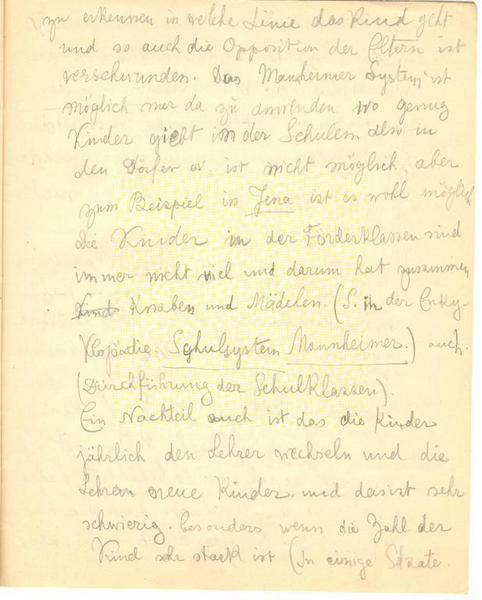 zu erkennen in welche Linie das Kind geht
und so auch die Opposition der Eltern ist
verschwunden. Das Manheimer System ist
möglich nur da zu anwenden wo genug
Kinder giebt in der Schulen also in
den Dörfer ist nicht möglich aber
zum Beispiel in Jena ist es wohl möglich
Die Kinder in der Förderklassen sind
immer nicht viel und darum hat zusammen
Kind Knaben und Mädchen. (S. in der Enky-
klopädie. Schulsystem Mannheimer.) auch.
(Dürchführung der Schulklassen).
Ein Nachteil auch ist das die Kinder
jährlich den Lehrer wechseln und die
Lehrern neue Kinder und das ist sehr
schwierig. besonders wenn die Zahl der
Kind sehr stark ist (In einige Staate